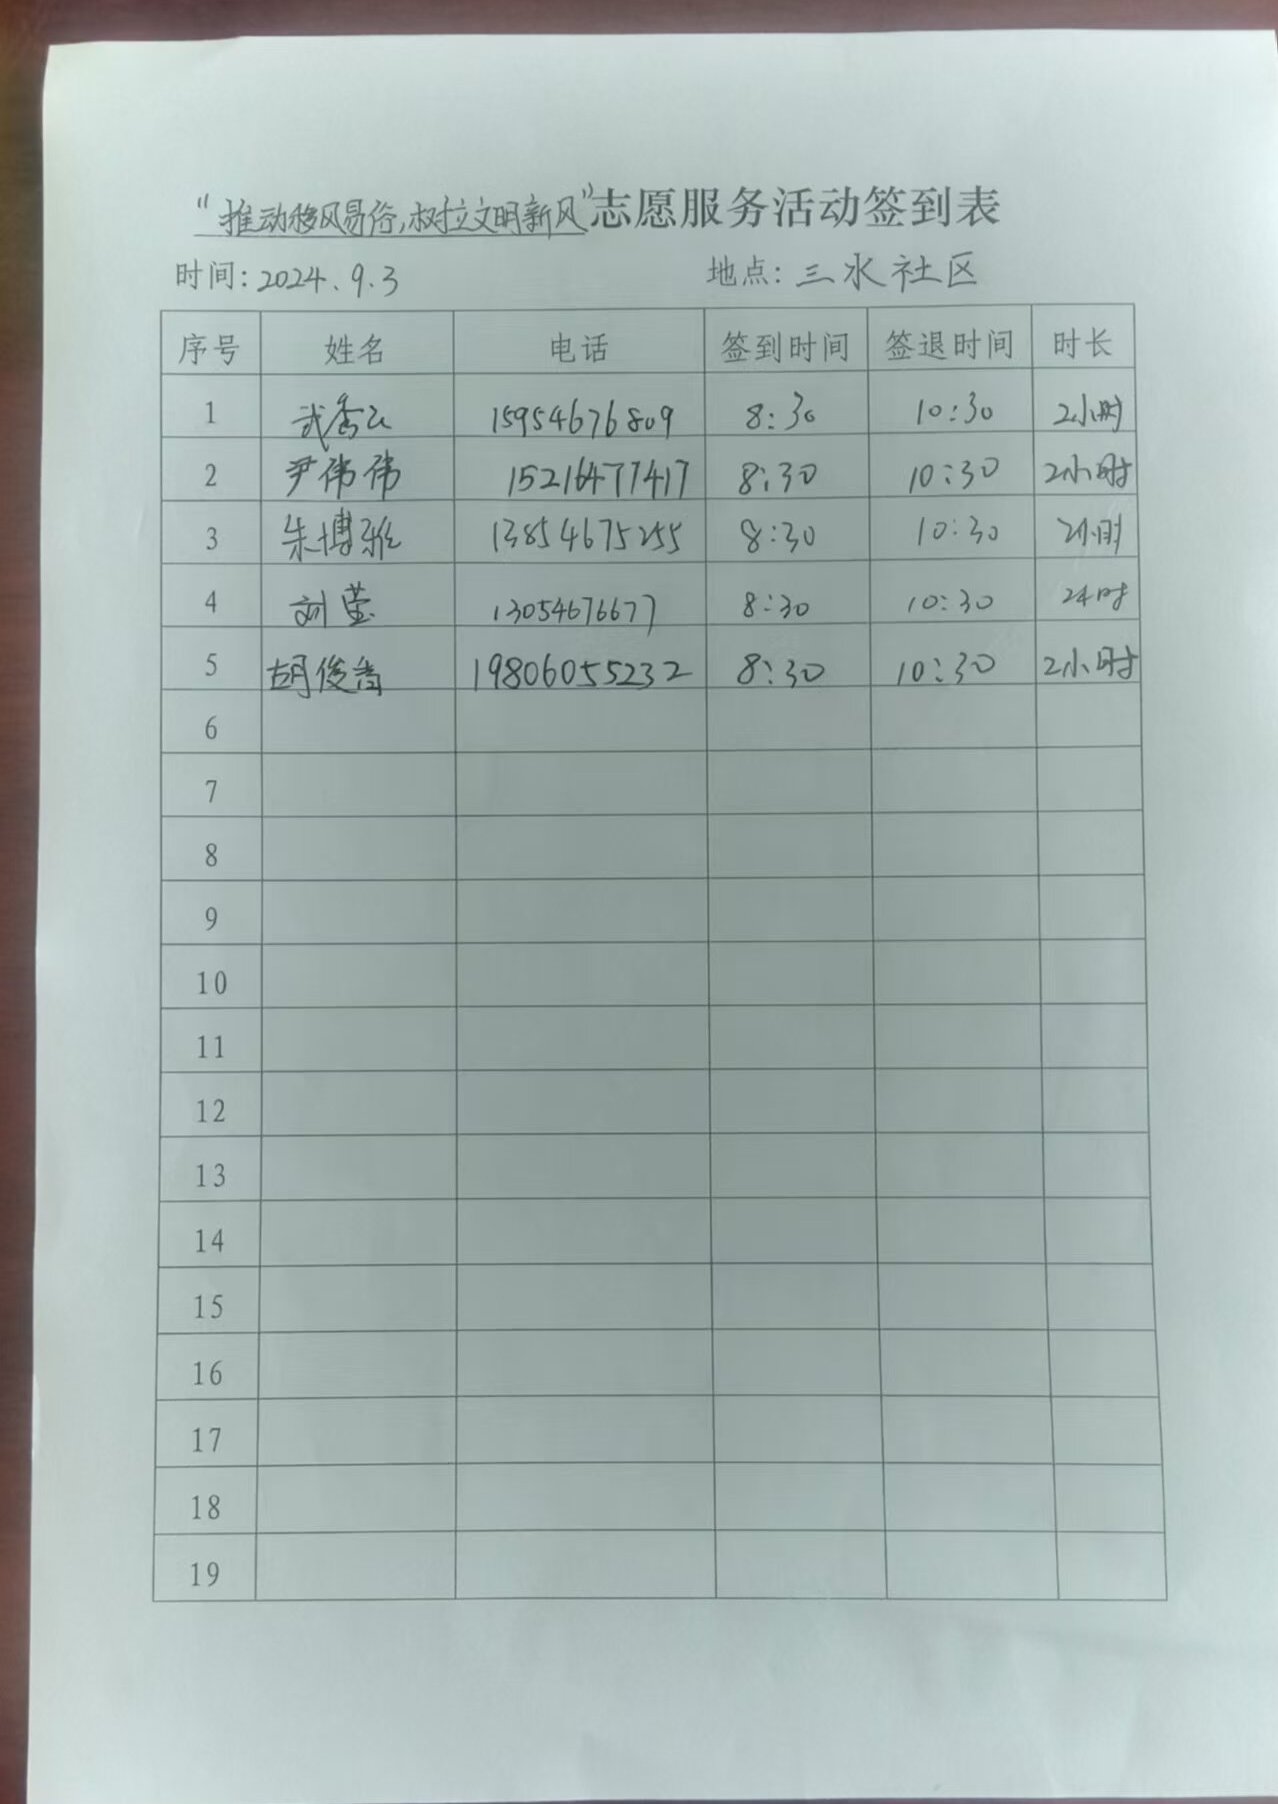 “推动移风易俗,树立文明新风”志愿服务活动签到表
时间:2024.9.3 地点:三水社区
序号 姓名 电话 签到时间 签退时间 时长
1 武秀云 15954676809 8:30 10:30 2小时
2 尹伟伟 15216477417 8:30 10:30 2小时
3 朱博雅 13854675255 8:30 10:30 2小时
4 刘莹 13054676677 8:30 10:30 2小时
5 胡俊香 19806055232 8:30 10:30 2小时
6
7
8
9
10
11
12
13
14
15
16
17
18
19